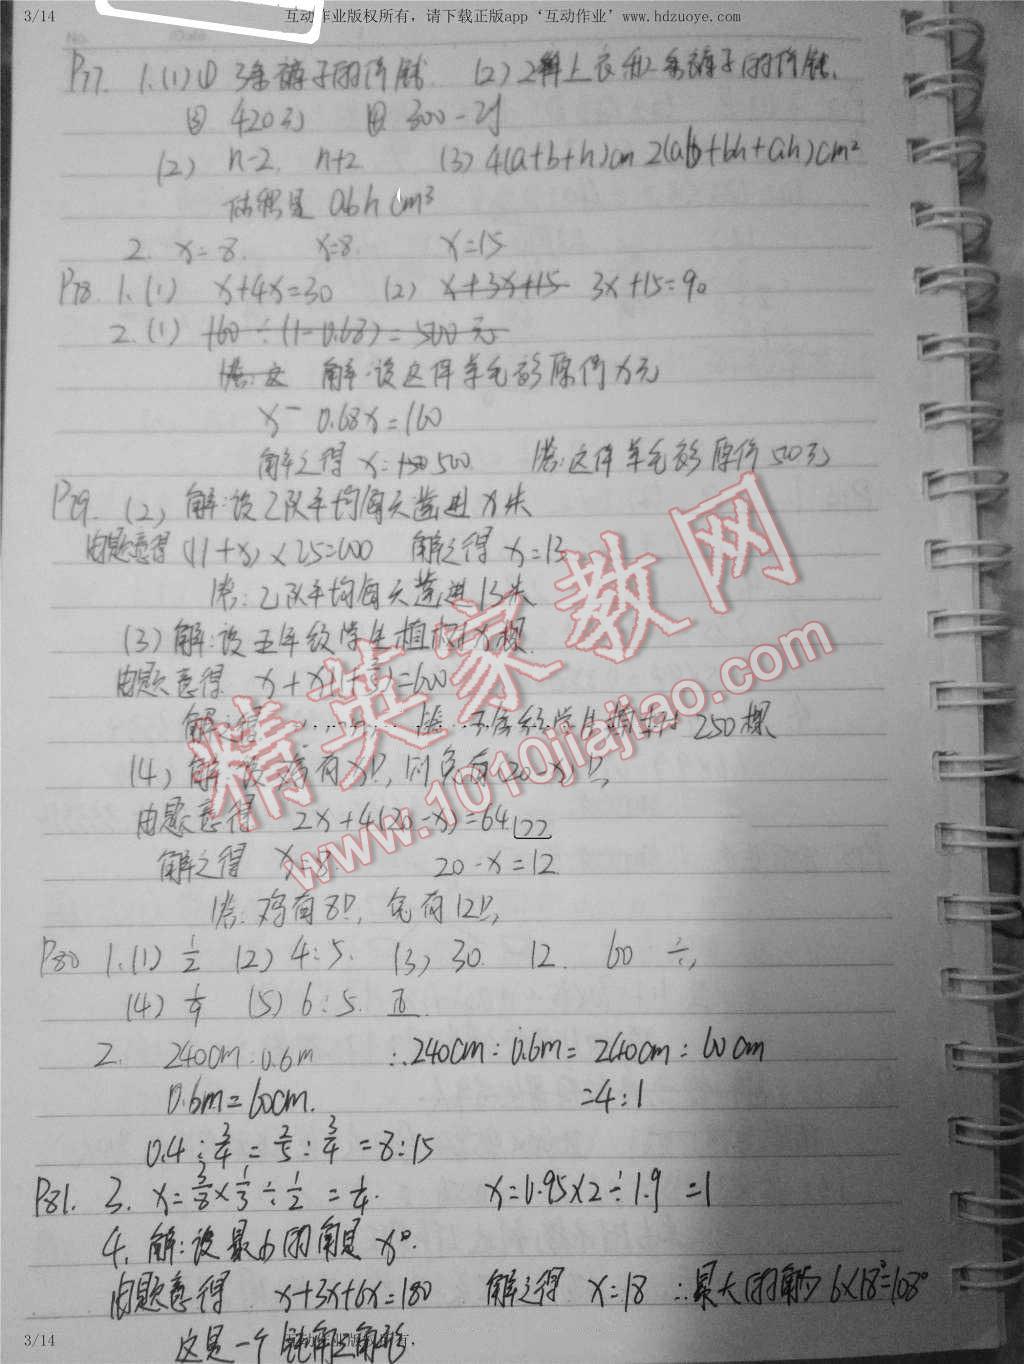 3/14 互动作业版权所有，请下载正版app‘互动作业’www.hdzuoye.com
P77. 1.(1)① 3条裤子的价钱. (2) 2件上衣和2条裤子的价钱.
420元 300-2j
(2) n-2. n+2 (3) 4(a+b+h)cm 2(ab+bh+ah)cm²
体积是 abh cm³
2. x=8. x=8. x=15
P78. 1.(1) x+4x=30 (2) x+3x+15 3x+15=90
2.(1) 160÷(1-0.68)=500元
答:这 解:设这件羊毛衫原价x元
x-0.68x=160
解之得 x=150 500. 答:这件羊毛衫原价50元
P79. (2) 解:设乙队平均每天凿进x米
由题意得 (11+x)×25=600 解之得 x=13
答:乙队平均每天凿进13米
(3) 解:设五年级学生植树x棵.
由题意得 =600
解之得 250棵
(4) 解:设鸡有x只,则兔有20-x只,
由题意得 2x+4(20-x)=64
解之得 x=8 20-x=12
答:鸡有8只, 兔有12只,
P80 1.(1) 1/2 (2) 4:5. (3) 30. 12. 60 ÷,
(4) (5) 6:5.
2. 240cm:0.6m ∴240cm:0.6m=240cm:60cm
0.6m=60cm. =4:1
0.4:3/4=2/5:3/4=8:15
P81. 3. x=3/8×1/3÷1/2=1/4. x=0.95×2÷1.9=1
4. 解:设最小的角是x°.
由题意得 x+3x+6x=180 解之得 x=18 ∴最大的角为6×18°=108°
这是一个钝角三角形
精英家教网
www.1010jiajiao.com
3/14